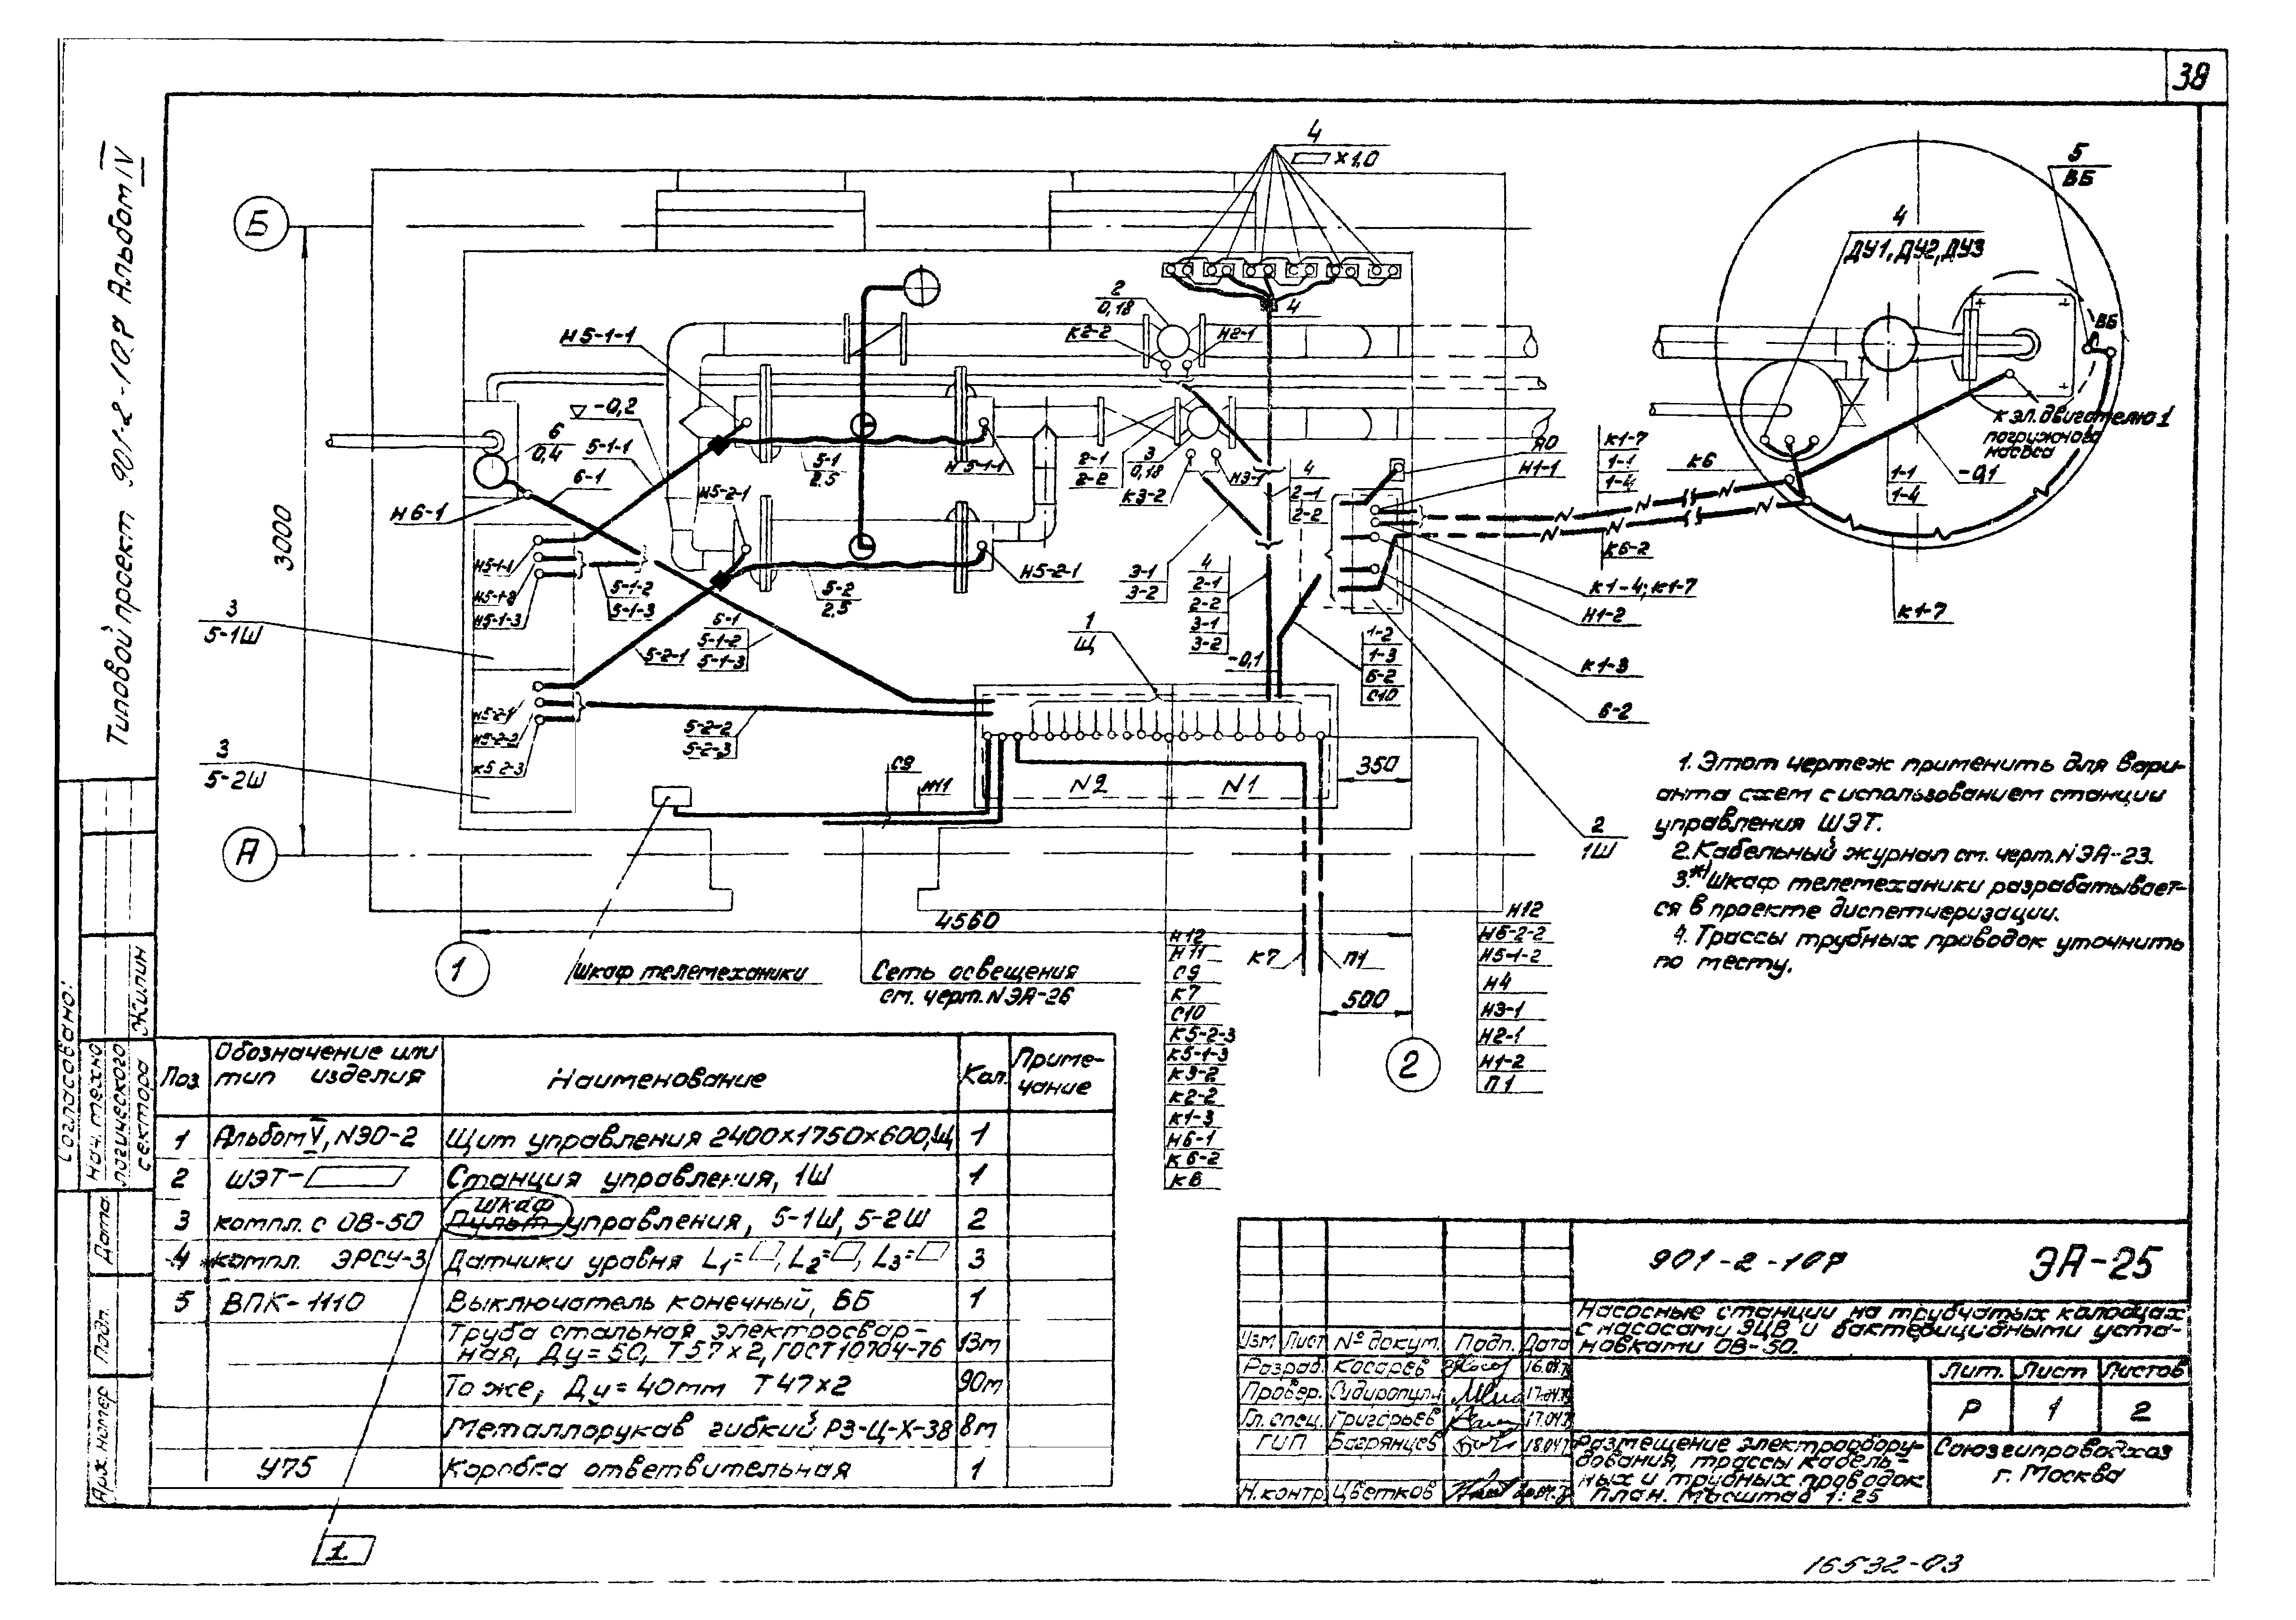 38
Типовой проект 901-2-10р Альбом IV
Согласовано:
Нач. техно
логического
сектора
Жилин
Дата
Подп.
Арх. номер
Б
А
1
2
3000
4560
350
500
4
▭ ×1,0
4
ДУ1, ДУ2, ДУ3
5
ВБ
ВБ
к эл. двигателю 1
погружного
насоса
-0,1
1-1
1-4
К6
К1-7
1-1
1-4
К6-2
К1-7
ЯО
Н1-1
К1-4; К1-7
Н1-2
К1-3
6-2
2
1Ш
2
0,18
К2-2
Н2-1
4
Н5-1-1
-0,2
5-1-1
6
0,4
6-1
Н6-1
5-1
2,5
Н5-1-1
Н5-2-1
2-1
2-2
3
0,18
К3-2
Н3-1
4
2-1
2-2
5-2
2,5
Н5-2-1
3-1
3-2
4
2-1
2-2
3-1
3-2
-0,1
1-2
1-3
6-2
С10
Н5-1-1
Н5-1-3
5-1-2
5-1-3
3
5-1Ш
5-2-1
6-1
5-1-2
5-1-3
1
Щ
Н5-2-1
Н5-2-2
К5-2-3
5-2-2
5-2-3
3
5-2Ш
С9
Н11
N2
N1
Шкаф телемеханики
Сеть освещения
см. черт. N ЭА-26
К7
П1
Н12
Н11
С9
К7
С10
К5-2-3
К5-1-3
К3-2
К2-2
К1-3
Н6-1
К6-2
Н12
Н5-1-2
Н4
Н3-1
Н2-1
Н1-2
П1
1. Этот чертеж применить для вари-
анта схем с использованием станции
управления ШЭТ.
2. Кабельный журнал см. черт. N ЭА-23.
3.*) Шкаф телемеханики разрабатывает-
ся в проекте диспетчеризации.
4. Трассы трубных проводок уточнить
по месту.
Поз. Обозначение или тип изделия Наименование Кол. Приме-чание
1 Альбом V, N ЭО-2 Щит управления 2400×1750×600, Щ 1
2 ШЭТ-▭ Станция управления, 1Ш 1
Шкаф
3 компл. с ОВ-50 Пульт управления, 5-1Ш, 5-2Ш 2
4 компл. ЭРСУ-3 Датчики уровня L1=▭, L2=▭, L3=▭ 3
5 ВПК-1110 Выключатель конечный, ВБ 1
Труба стальная электросвар-
ная, Ду=50, Т57×2, ГОСТ 10704-76 13м
То же, Ду=40мм Т47×2 90м
Металлорукав гибкий РЗ-Ц-Х-38 8м
У75 Коробка ответвительная 1
1.
901-2-10р ЭА-25
Насосные станции на трубчатых колодцах
с насосами ЭЦВ и бактерицидными уста-
новками ОВ-50.
Изм Лист № докум. Подп. Дата
Разраб. Косарев
Провер. Сидиропули
Гл. спец. Григорьев
ГИП Багрянцев
Н. контр. Цветков
Лит. Лист Листов
Р 1 2
Размещение электрообору-
дования, трассы кабель-
ных и трубных проводок
План. Масштаб 1:25
Союзгипроводхоз
г. Москва
16532-03